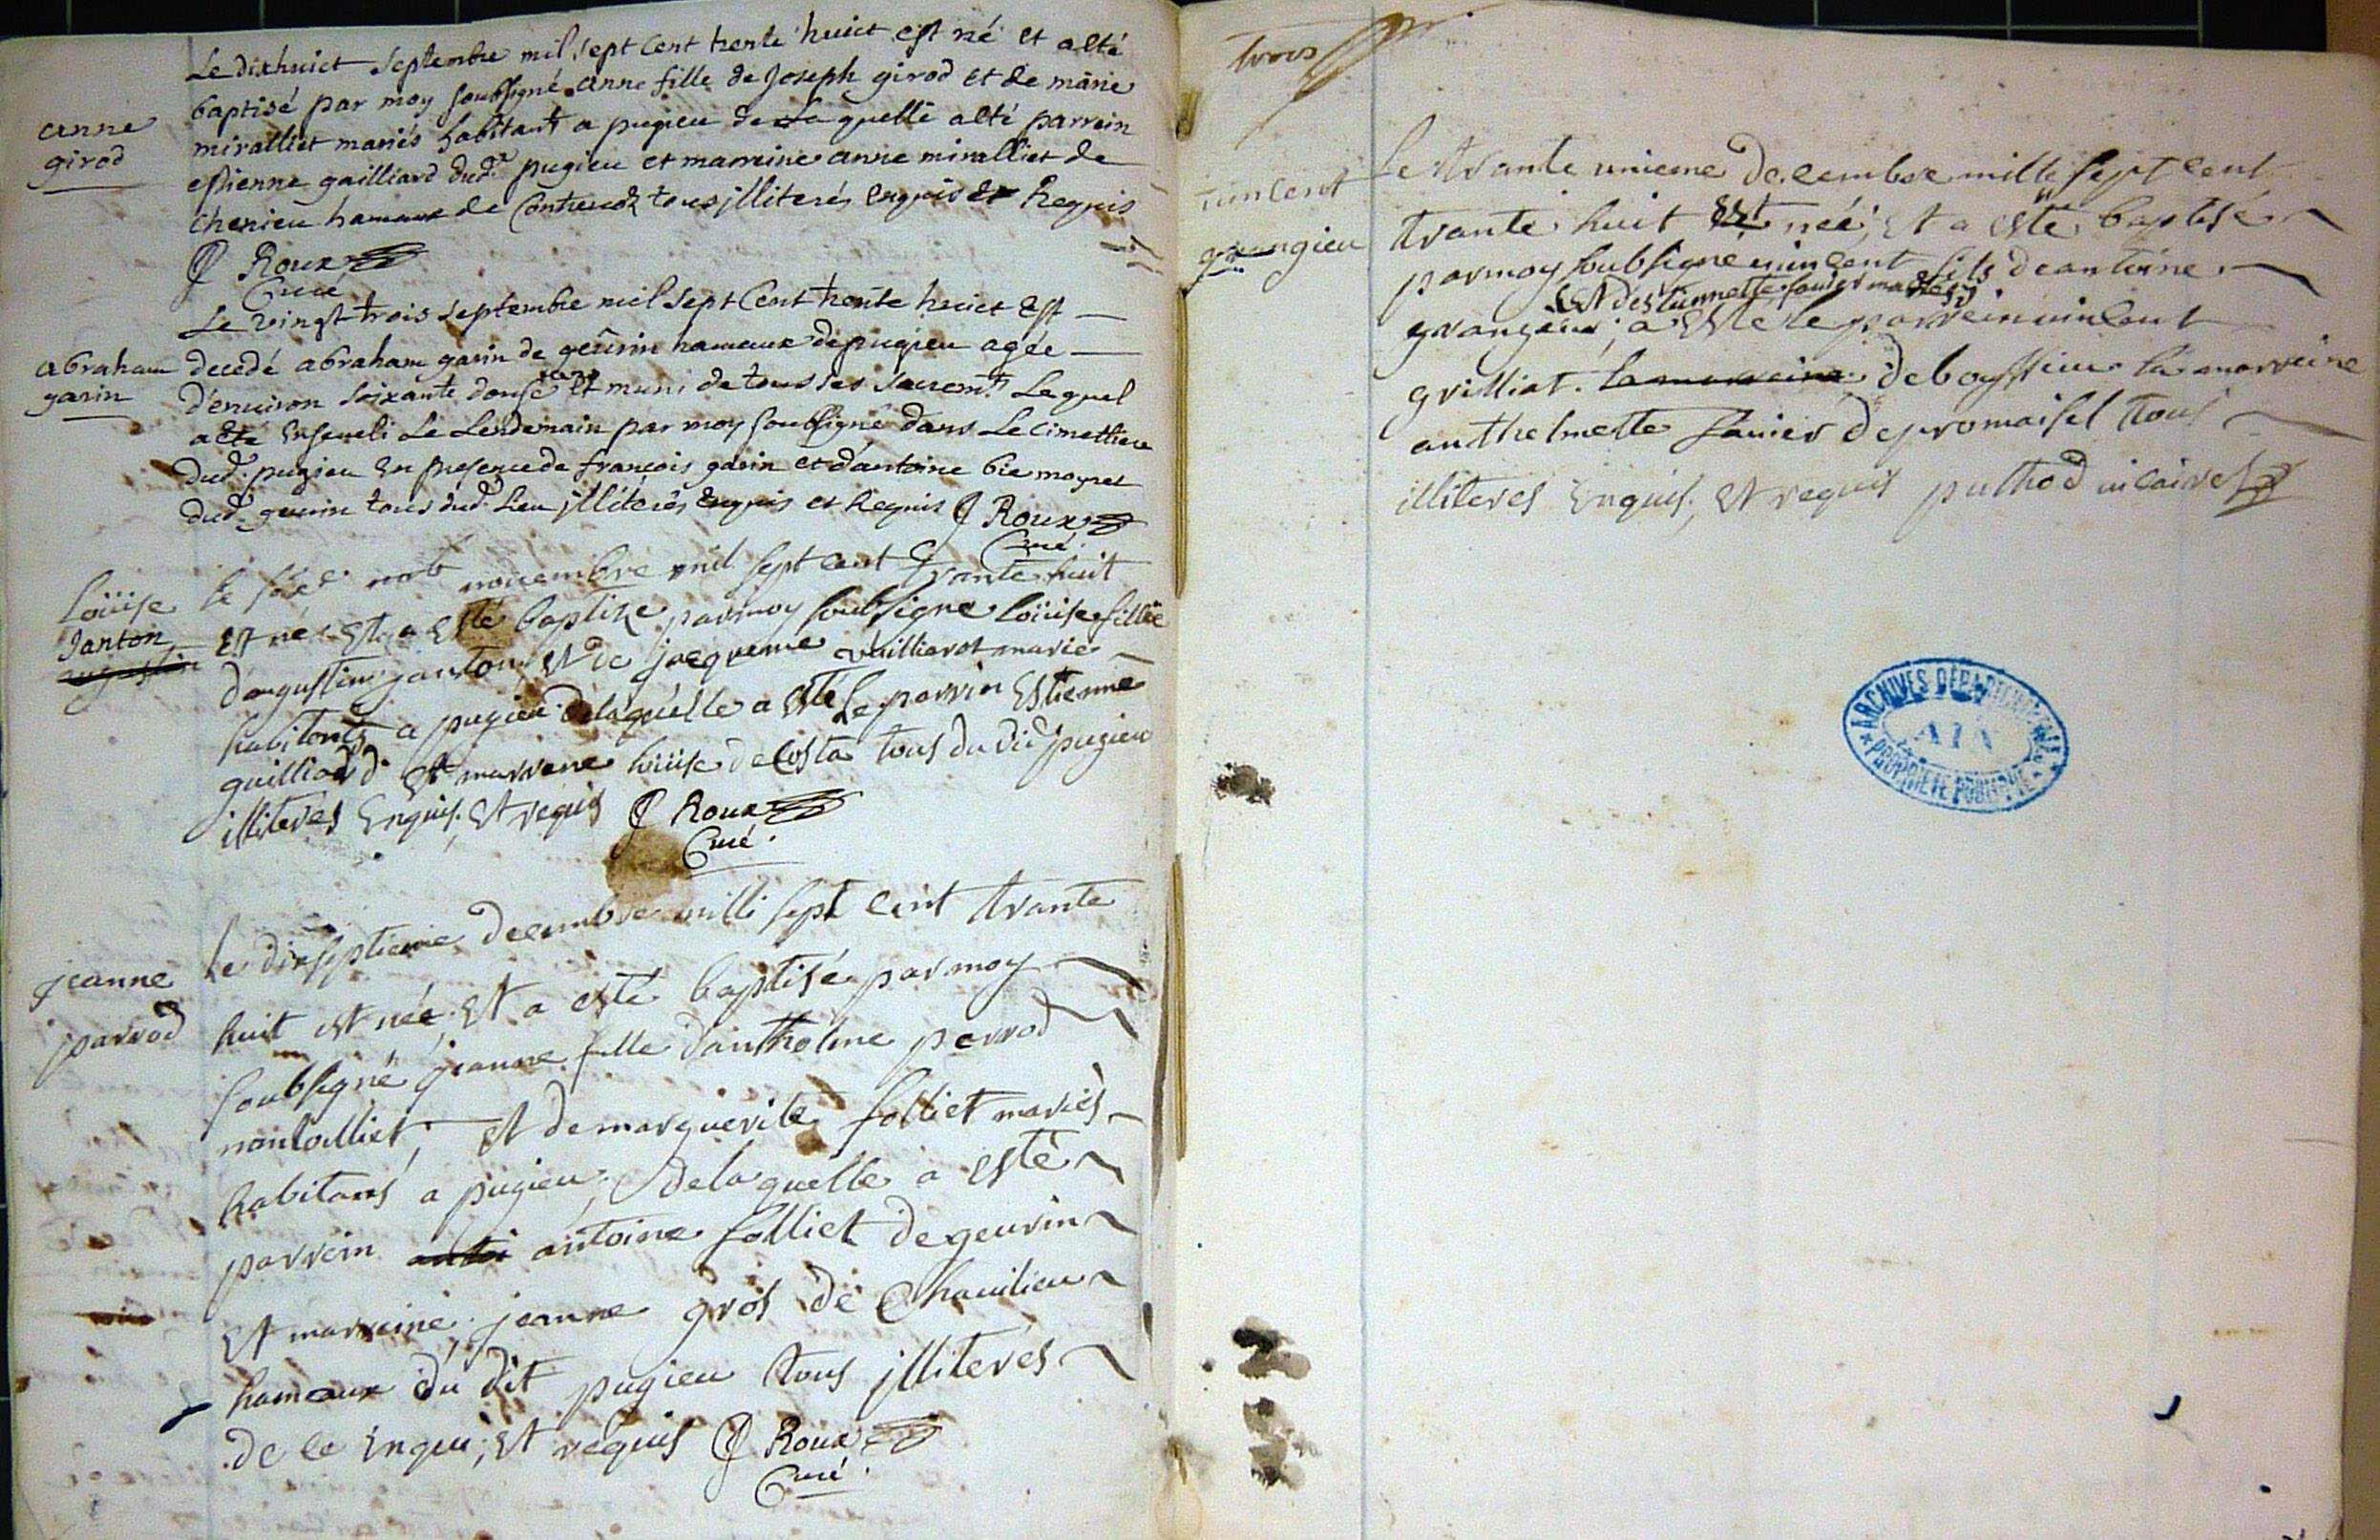 Le dixhuict septembre mil sept cent trente huict est né et a été
baptisé par moy soubsigné anne fille de Joseph girod et de marie
anne
girod
miralliet mariés habitant a pugieu de la quelle a été parrein
estienne gailliard dud. pugieu et marreine anne miralliet de
chenieu hameaux de tous jlliterés enquis et Requis
J Roux
Curé
Le vingt trois septembre mil sept Cent trente huict Est
abraham
garin
decedé abraham garin de geûrin hameaux de pugieu agée
d'enuiron soixante douse ans et muni de tous ses sacremts. Lequel
a été Enseueli Le Lendemain par moy soubsigné dans Le cimettiere
dud. pugieu En presence de françois garin et d'antoine
dud. geurin tous dud. Lieu jllitérés enquis et Requis J Roux
Curé
Loüise
Janton
le nouembre mil sept cent trante huit
Est né Et a Esté baptize par moy soubsigne loüise fillie
daugustin janton, Et de jacqueme marie
habitants a pugieu delaquelle a Esté Le parrin Estienne
guilliard Et marrene loüise decosta tous du did pugieu
illiteres Enquis, Et requis J Roux
Curé
jeanne
parrod
Le dixseptieme decembre mille sept cent trante
huit est née, Et a esté baptisé par moy
soubsigné jeanne fille dantholme parrod
, Et de marguerite folliet mariés
habitans a pugieu, delaquelle a Esté
parrein antoi antoine folliet de geurin
Et marreine, jeanne gros de Chauilieu
hameaux du dit pugieu tous jlliterés
de ce Enqui, Et requis J Roux
Curé
trois
uincent
grangieu
Le trante unieme decembre mille sept cent
trante huit Est née, Et a Esté baptisé
par moy soubsigne uincent fils deantoine
Et destiennette mariés
grangieu, a Esté le parrein uincent
grilliat. la marreine de boyssieu la marreine
anthelmette de promaisel tous
illiteres Enquis, Et requis puthod uicaire
ARCHIVES DÉPARTEMENTALES
AIN
PROPRIÉTÉ PUBLIQUE